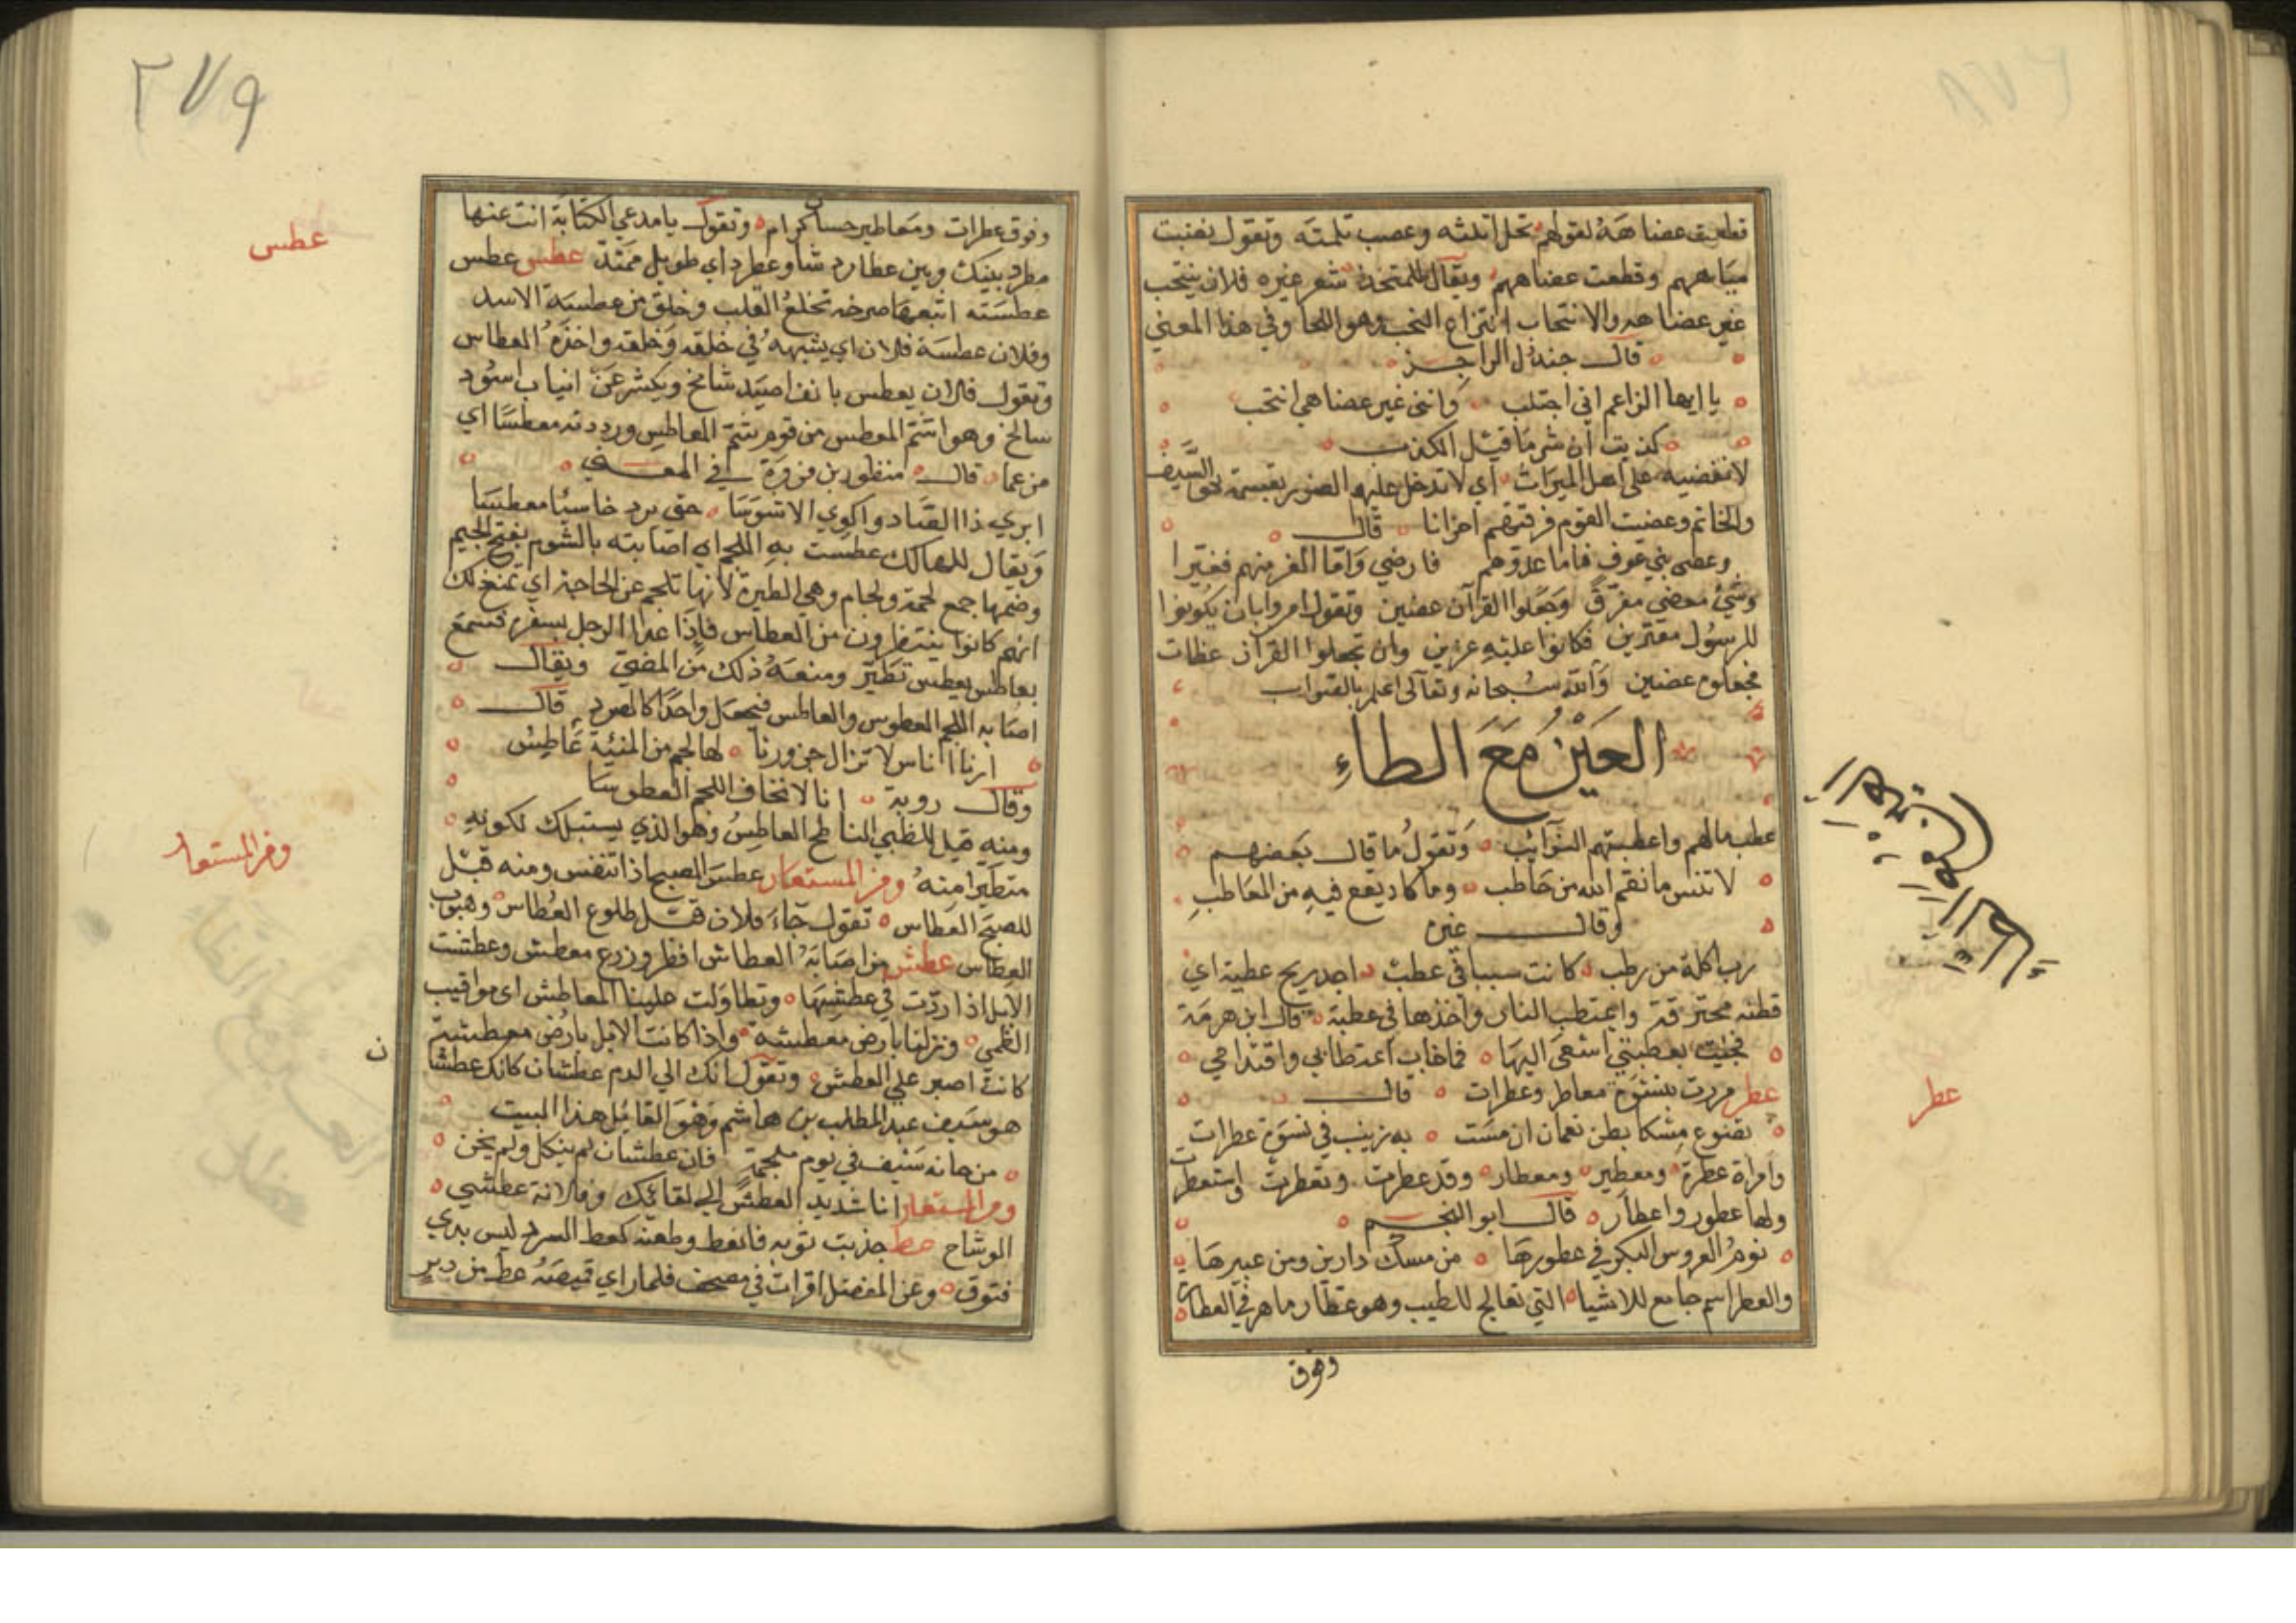 قطعت عضاهه لقولهم نحل اثلثه وعصب سلمته وتقول نفنيت
مياههم وقطعت عضاههم ويقال للمتخذ شعر غيره فلان ينتحب
غير عضاهه والانتحاب انتزاع النحب وهو اللحا وفي هذا المعني
قال جندل الراجز
يا ايها الزاعم اني اجتلب وانني غير عضاهي انتحب
كذبت ان شر ما قيل الكذب
لا تعضيه على اهل الميراث اي لا تدخل عليهم الضرر بقسمة نحو السيف
والخاتم وعضيت القوم فرقتهم احزانا قال
وعضى بني عوف فاما عدوهم فارضي واما الغر منهم فغيرا
وشيء معضى مفرق وجعلوا القرآن عضين وتقول امروا بان يكونوا
للرسول معزرين فكانوا عليه عزين وان يجعلوا القران عظات
فجعلوه عضين والله سبحانه وتعالى اعلم بالصواب
العين مع الطاء
عطب مالهم واعطبتهم النوائب وتقول ما قال بعضهم
لا تنس ما نقم الله من حاطب وما كاد يقع فيه من المعاطب
وقال غيره
رب اكلة من رطب كانت سببا في عطب اجد ريح عطبة اي
قطنه محترقة واعتطب النار واخذها في عطبة قال ابن هرمة
فجئت بعطبتي اسعى اليها فما خاب اعتطابي واقتداحي
عطر مررت بنسوة معاطر وعطرات قال
تضوع مسكا بطن نعمان ان مشت به زينب في نسوة عطرات
وامراة عطرة ومعطير ومعطار وقد عطرت وتعطرت واستعطرت
ولها عطور واعطار قال ابو النجم
نوم العروس البكر في عطورها من مسك دارين ومن عبيرها
والعطر اسم جامع للاشياء التي تعالج للطيب وهو عطار ماهر في العطارة
وهوق
العين مع الطاء
عطر
٢٧٩
ونوق عطرات ومعاطير حسان كرام وتقول يا مدعي الكتابة انت عنها
مطرد بينك وبين عطارد شاو عطرد اي طويل ممتد عطس عطس
عطسته اتبعها صرخه تخلع القلب وخلق من عطسة الاسد
وفلان عطسة فلان اي يشبهه في خلقه وخلقه واخذه العطاس
وتقول فلان يعطس بانف اصيد شامخ ويكشر عن انياب اسود
سالخ وهو اشم المعطس من قوم شم المعاطس ورددته معطسا اي
مرغما قال منظور بن فروة في المعنى
ابري ذا الصاد واكوي الاشوسا حتى يرد خاسئا معطسا
ويقال للهالك عطست به اللجم اي اصابته بالشوم بفتح الجيم
وضمها جمع لجمة ولجام وهي الطيرة لانها تلجم عن الحاجة اي تمنع ذلك
انهم كانوا ينتظرون من العطاس فاذا غدا الرجل بسفره فسمع
بعاطس يعطس تطير ومنعه ذلك من المضي ويقال
اصابه اللجم العطوس والعاطس فيجعل واحدا كالصرد قال
انا اناس لا تزال جزورنا لها لجم من المنية عاطس
وقال روبة انا لا نخاف اللجم العطوسا
ومنه قيل للظبي الناطح العاطس وهو الذي يستقبلك لكونه
متطيرا منه ومن المستعار عطس الصبح اذا تنفس ومنه قيل
للصبح العطاس تقول جاء فلان قبل طلوع العطاس وهبوب
العطاس عطش من اصابه العطاش افطر وزرع معطش وعطشت
الابل اذا زدت في عطشها وتطاولت علينا المعاطش اي مواقيت
الظمي ونزلنا بارض معطشة واذا كانت الابل بارض معطشة
كانت اصبر علي العطش وتقول انك الي الدم عطشان كانك عطشان
هو سيف عبد المطلب بن هاشم وهو القائل هذا البيت
من خانه سيف في يوم ملحمة فان عطشان لم ينكل ولم يخن
ومن المستعار انا شديد العطش الي لقائك وفلانة عطشي
الوشاح عطط جذبت ثوبه فانعط وطعنه كعط السرد ليس بذي
فتوق وعن المفضل اقرات في مصحف فلما راي قميصه عط من دبر
عطس
ومن المستعار
ن